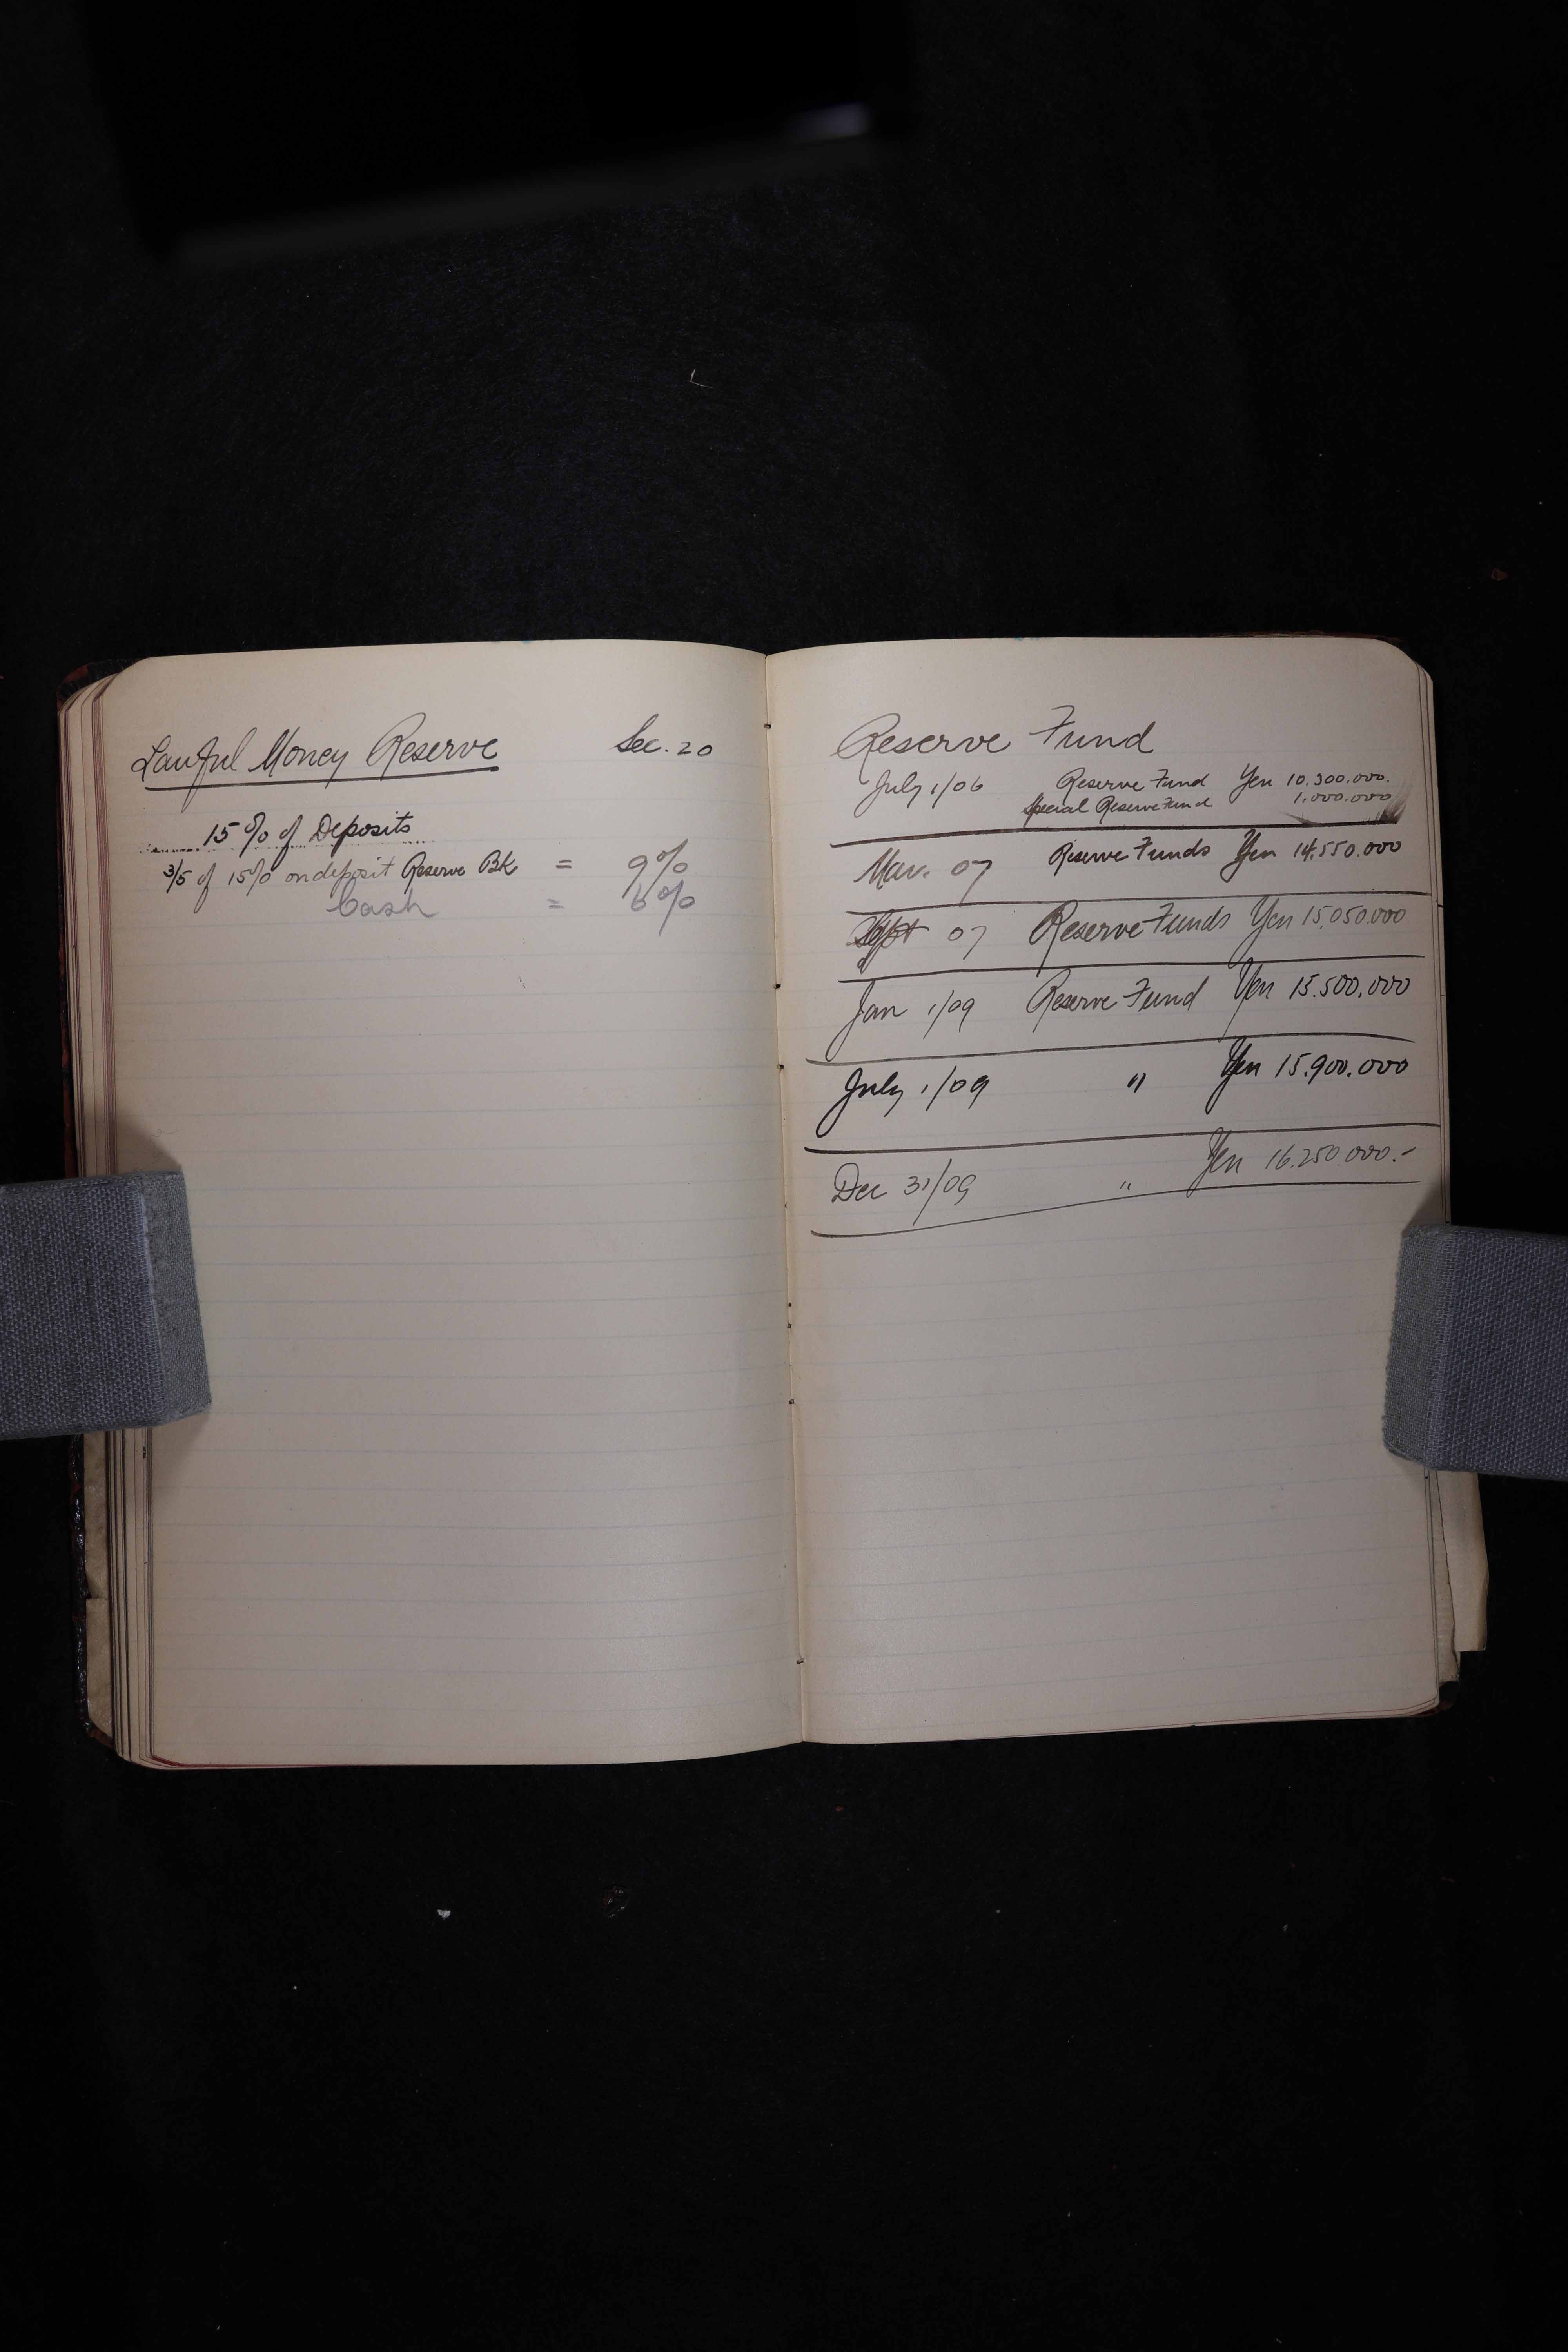 Lawful Money Reserve Sec. 20
15% of Deposits
3/5 of 15% on deposit Reserve Bk = 9%
Cash = 6%
Reserve Fund
July 1/06 Reserve Fund Yen 10.300.000.
Special Reserve Fund 1.000.000
Mar. 07 Reserve Funds Yen 14,550.000
Sept 07 Reserve Funds Yen 15,050.000
Jan 1/09 Reserve Fund Yen 15.500,000
July 1/09 " Yen 15.900.000
Dec 31/09 " Yen 16.250.000.-